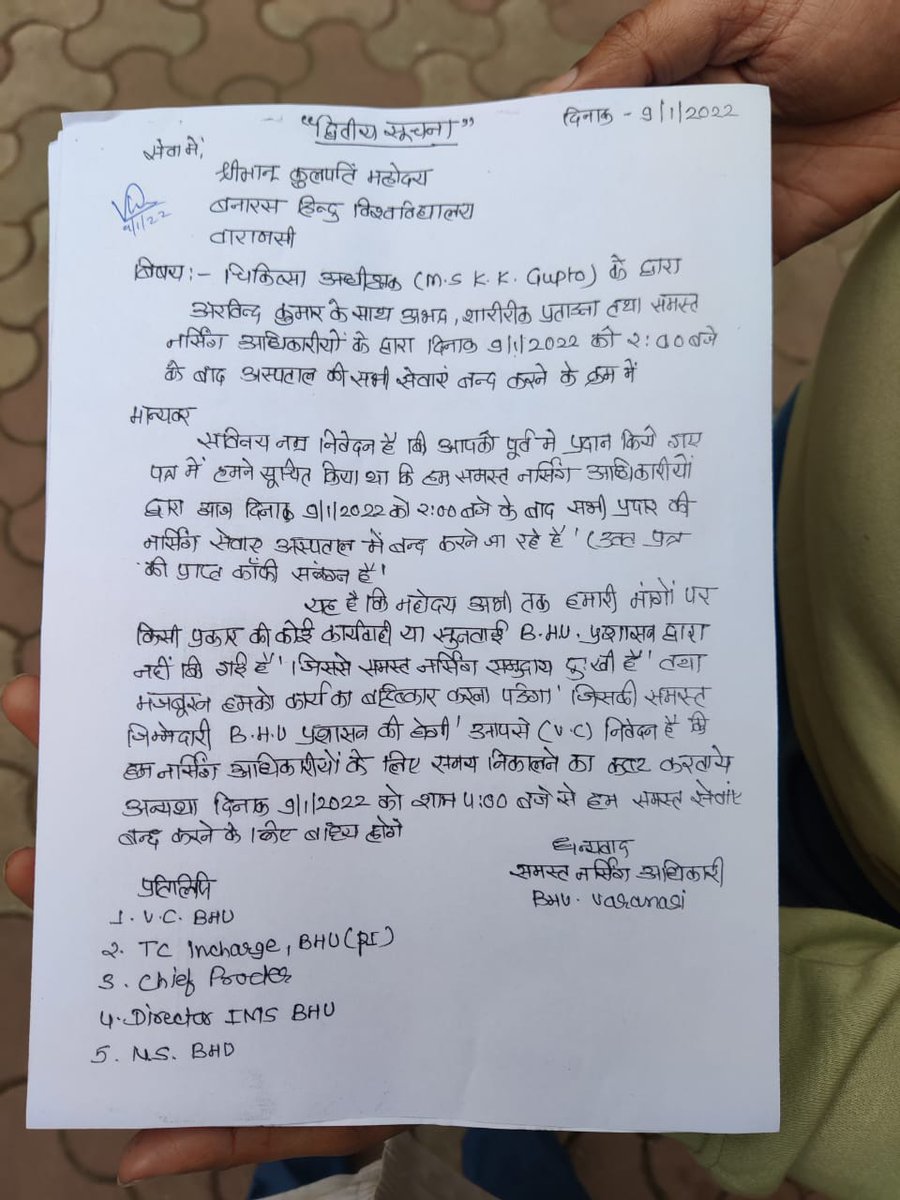 "द्वितीय सूचना"
दिनांक - 9/1/2022
सेवा में,
श्रीमान कुलपति महोदय
9/1/22
बनारस हिन्दु विश्वविद्यालय
वाराणसी
विषय:- चिकित्सा अधीक्षक (M.S K.K. Gupta) के द्वारा
अरविन्द कुमार के साथ अभद्र, शारीरीक प्रताडना तथा समस्त
नर्सिंग अधिकारीयों के द्वारा दिनांक 9/1/2022 को 2:00 बजे
के बाद अस्पताल की सभी सेवाएं बन्द करने के क्रम में
मान्यवर
सविनय नम्र निवेदन है कि आपको पूर्व मे प्रदान किये गए
पत्र में हमने सूचित किया था कि हम समस्त नर्सिंग अधिकारीयों
द्वारा आज दिनांक 9/1/2022 को 2:00 बजे के बाद सभी प्रकार की
नर्सिंग सेवाए अस्पताल में बन्द करने जा रहे है' (उक्त पत्र
की प्राप्त कॉपी संलग्न है'
यह है कि महोदय अभी तक हमारी मांगों पर
किसी प्रकार की कोई कार्यवाही या सुनवाई B.H.U. प्रशासन द्वारा
नहीं कि गई है'। जिससे समस्त नर्सिंग समुदाय दुःखी है' तथा
मजबूरन हमको कार्य का बहिष्कार करना पडेगा' जिसकी समस्त
जिम्मेदारी B.H.U प्रशासन की होगी' आपसे (V.C) निवेदन है कि
हम नर्सिंग अधिकारीयों के लिए समय निकालने का कष्ट करवाये
अन्यथा दिनांक 9/1/2022 को शाम 4:00 बजे से हम समस्त सेवाएं
बन्द करने के लिए बाध्यि होंगे
धन्यवाद
समस्त नर्सिंग अधिकारी
BHU. Varanasi
प्रतिलिपि
1. V.C. BHU
2. TC Incharge, BHU (PI)
3. Chief Procter
4. Director IMS BHU
5. N.S. BHU